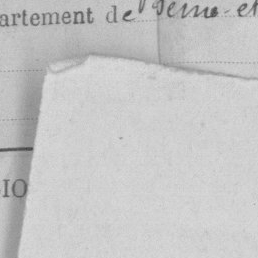 artement de Seine-et
SIO